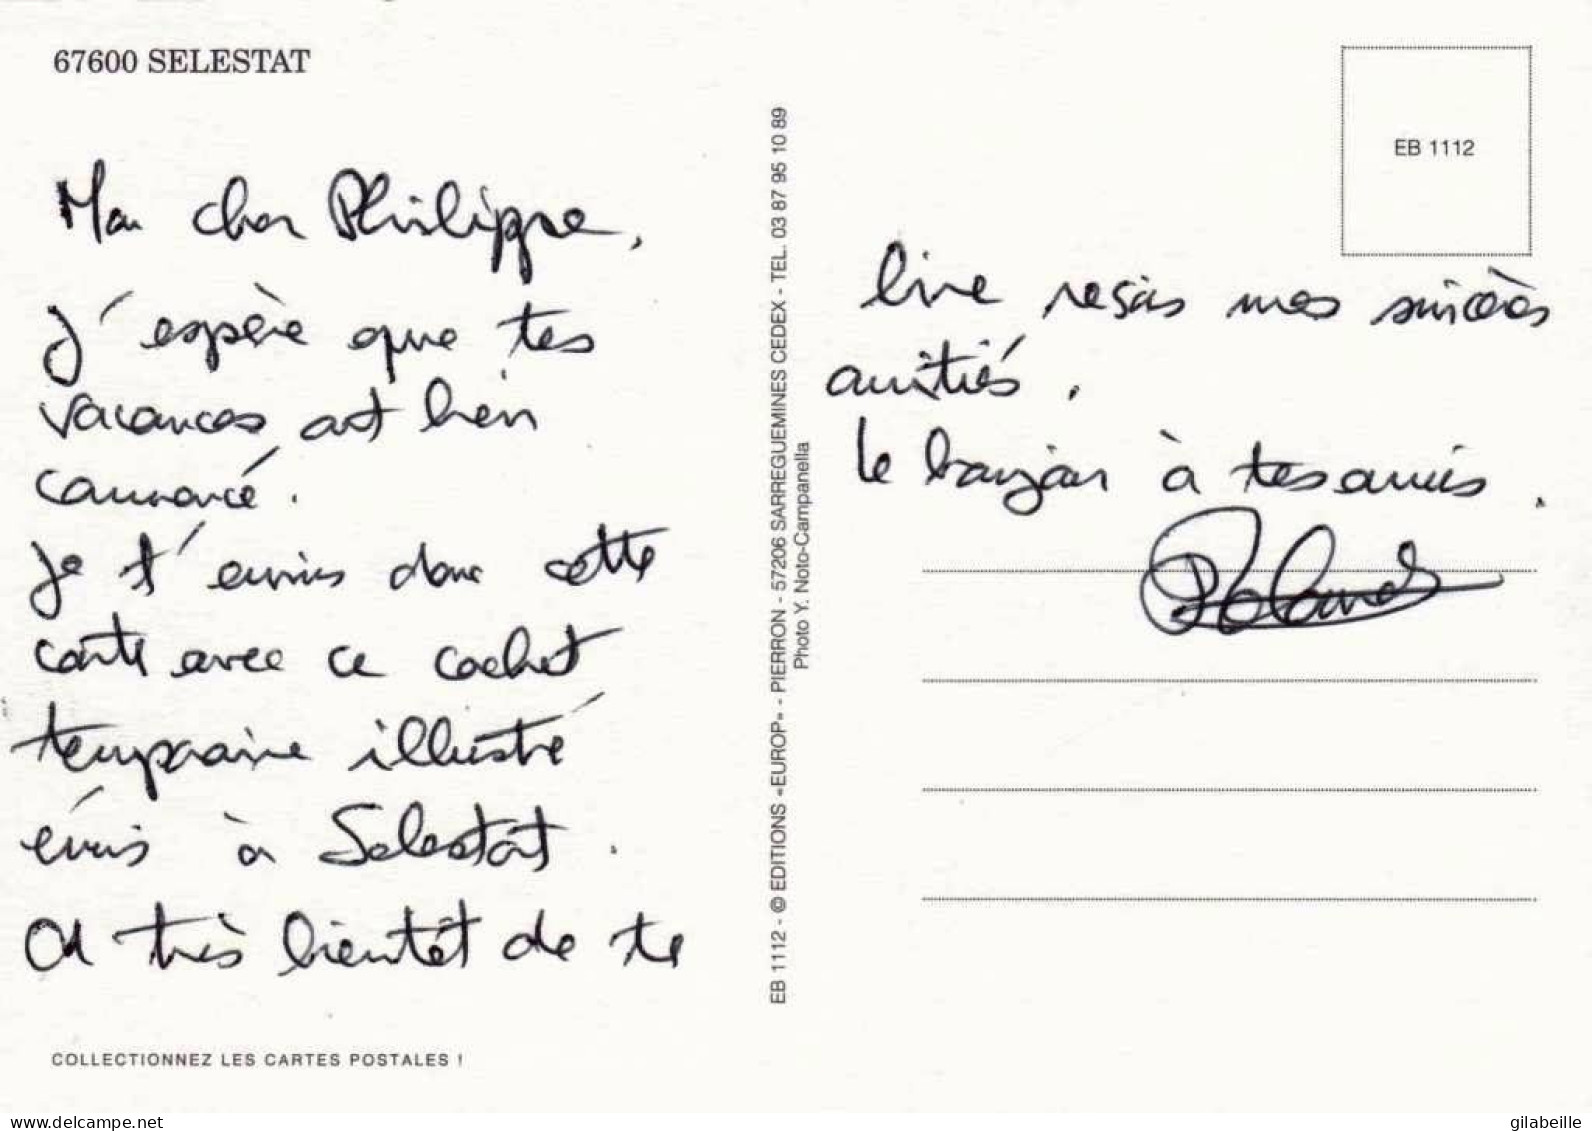 67600 SELESTAT
Mon cher Philippe,
j'espère que tes
vacances ont bien
commencé.
Je t'envoies donc cette
carte avec ce cachet
temporaire illustré
émis à Selestat.
A très bientôt de te
COLLECTIONNEZ LES CARTES POSTALES !
EB 1112 - © EDITIONS «EUROP» - PIERRON - 57206 SARREGUEMINES CEDEX - TEL. 03 87 95 10 89
Photo Y. Noto-Campanella
EB 1112
lire reçois mes sincères
amitiés.
le bonjour à tes amis.
Roland
www.delcampe.net
gilabeille